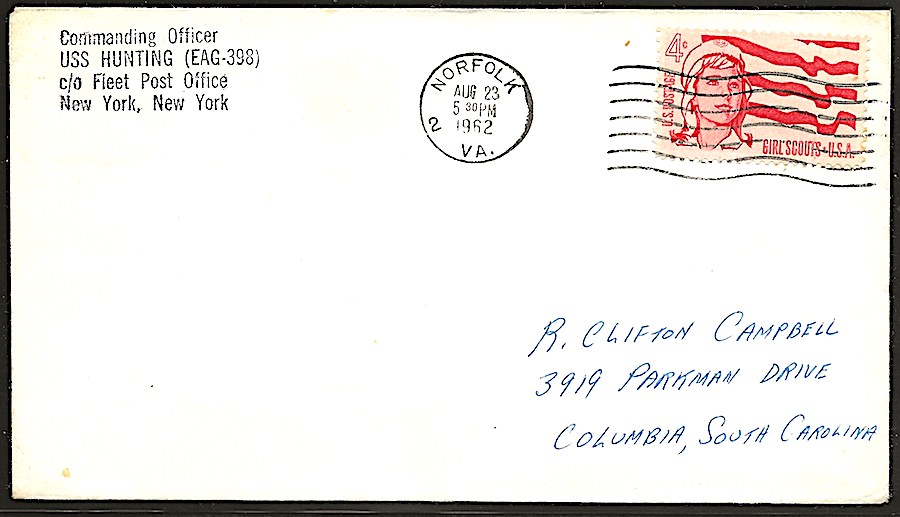 Commanding Officer
USS HUNTING (EAG-398)
c/o Fleet Post Office
New York, New York
NORFOLK
AUG 23
5 30PM
1962
2
VA.
4c
U.S. POSTAGE
GIRL SCOUTS • U.S.A.
R. CLIFTON CAMPBELL
3919 PARKMAN DRIVE
COLUMBIA, SOUTH CAROLINA